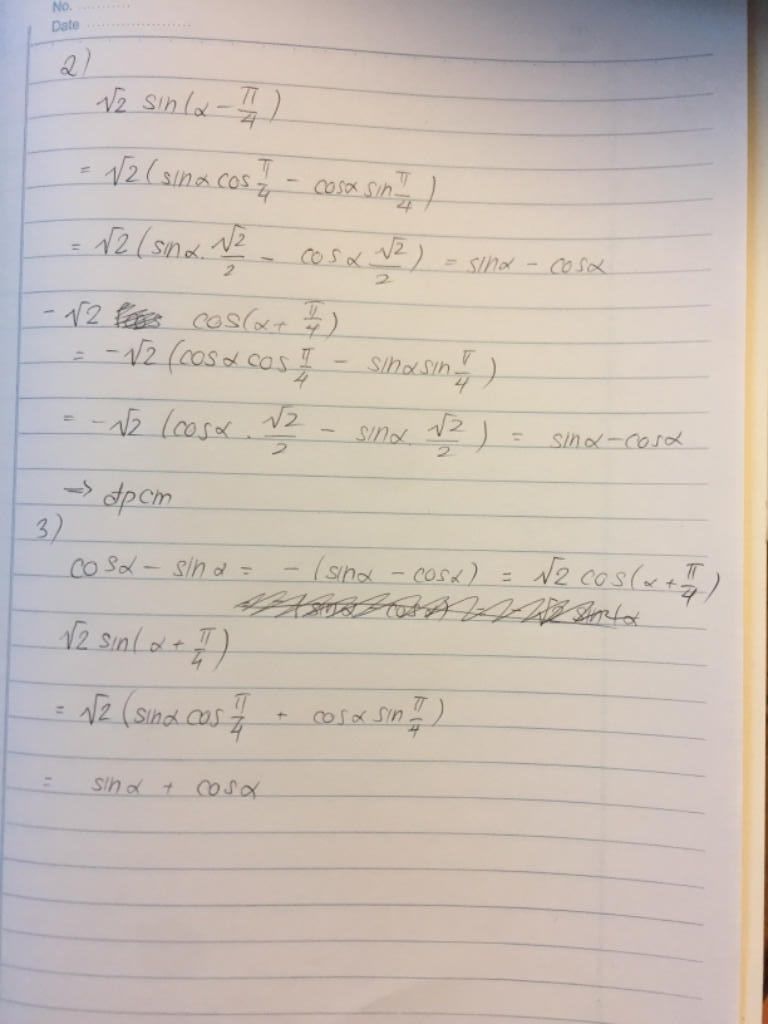 No. ............
Date ........................
2)
√2 sin(α − π/4)
= √2 (sinα cos π/4 − cosα sin π/4)
= √2 (sinα. √2/2 − cosα √2/2) = sinα − cosα
−√2 cos(α + π/4)
= −√2 (cosα cos π/4 − sinα sin π/4)
= −√2 (cosα . √2/2 − sinα. √2/2) = sinα − cosα
=> đpcm
3)
cosα − sinα = −(sinα − cosα) = √2 cos(α + π/4)
√2 sin(α + π/4)
= √2 (sinα cos π/4 + cosα sin π/4)
= sinα + cosα